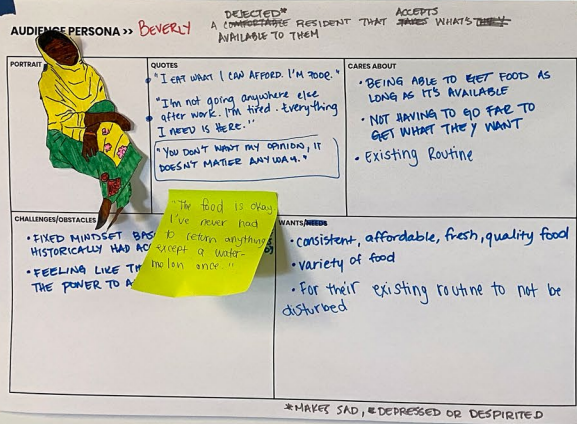 DEJECTED* ACCEPTS
AUDIENCE PERSONA >> BEVERLY A COMFORTABLE RESIDENT THAT TAKES WHAT'S THEY
AVAILABLE TO THEM
PORTRAIT
QUOTES
"I EAT WHAT I CAN AFFORD. I'M POOR."
"I'm not going anywhere else
after work. I'm tired. Everything
I NEED IS HERE."
"YOU DON'T WANT MY OPINION, IT
DOESN'T MATTER ANYWAY."
CARES ABOUT
• BEING ABLE TO GET FOOD AS
LONG AS IT'S AVAILABLE
• NOT HAVING TO GO FAR TO
GET WHAT THEY WANT
• Existing Routine
CHALLENGES/OBSTACLES
• FIXED MINDSET BAS
HISTORICALLY HAD AC
• FEELING LIKE TH
THE POWER TO A
"The food is okay
I've never had
to return anything
except a water-
melon once."
WANTS/NEEDS
• consistent, affordable, fresh, quality food
• variety of food
• For their existing routine to not be
disturbed
*MAKES SAD, DEPRESSED OR DESPIRITED